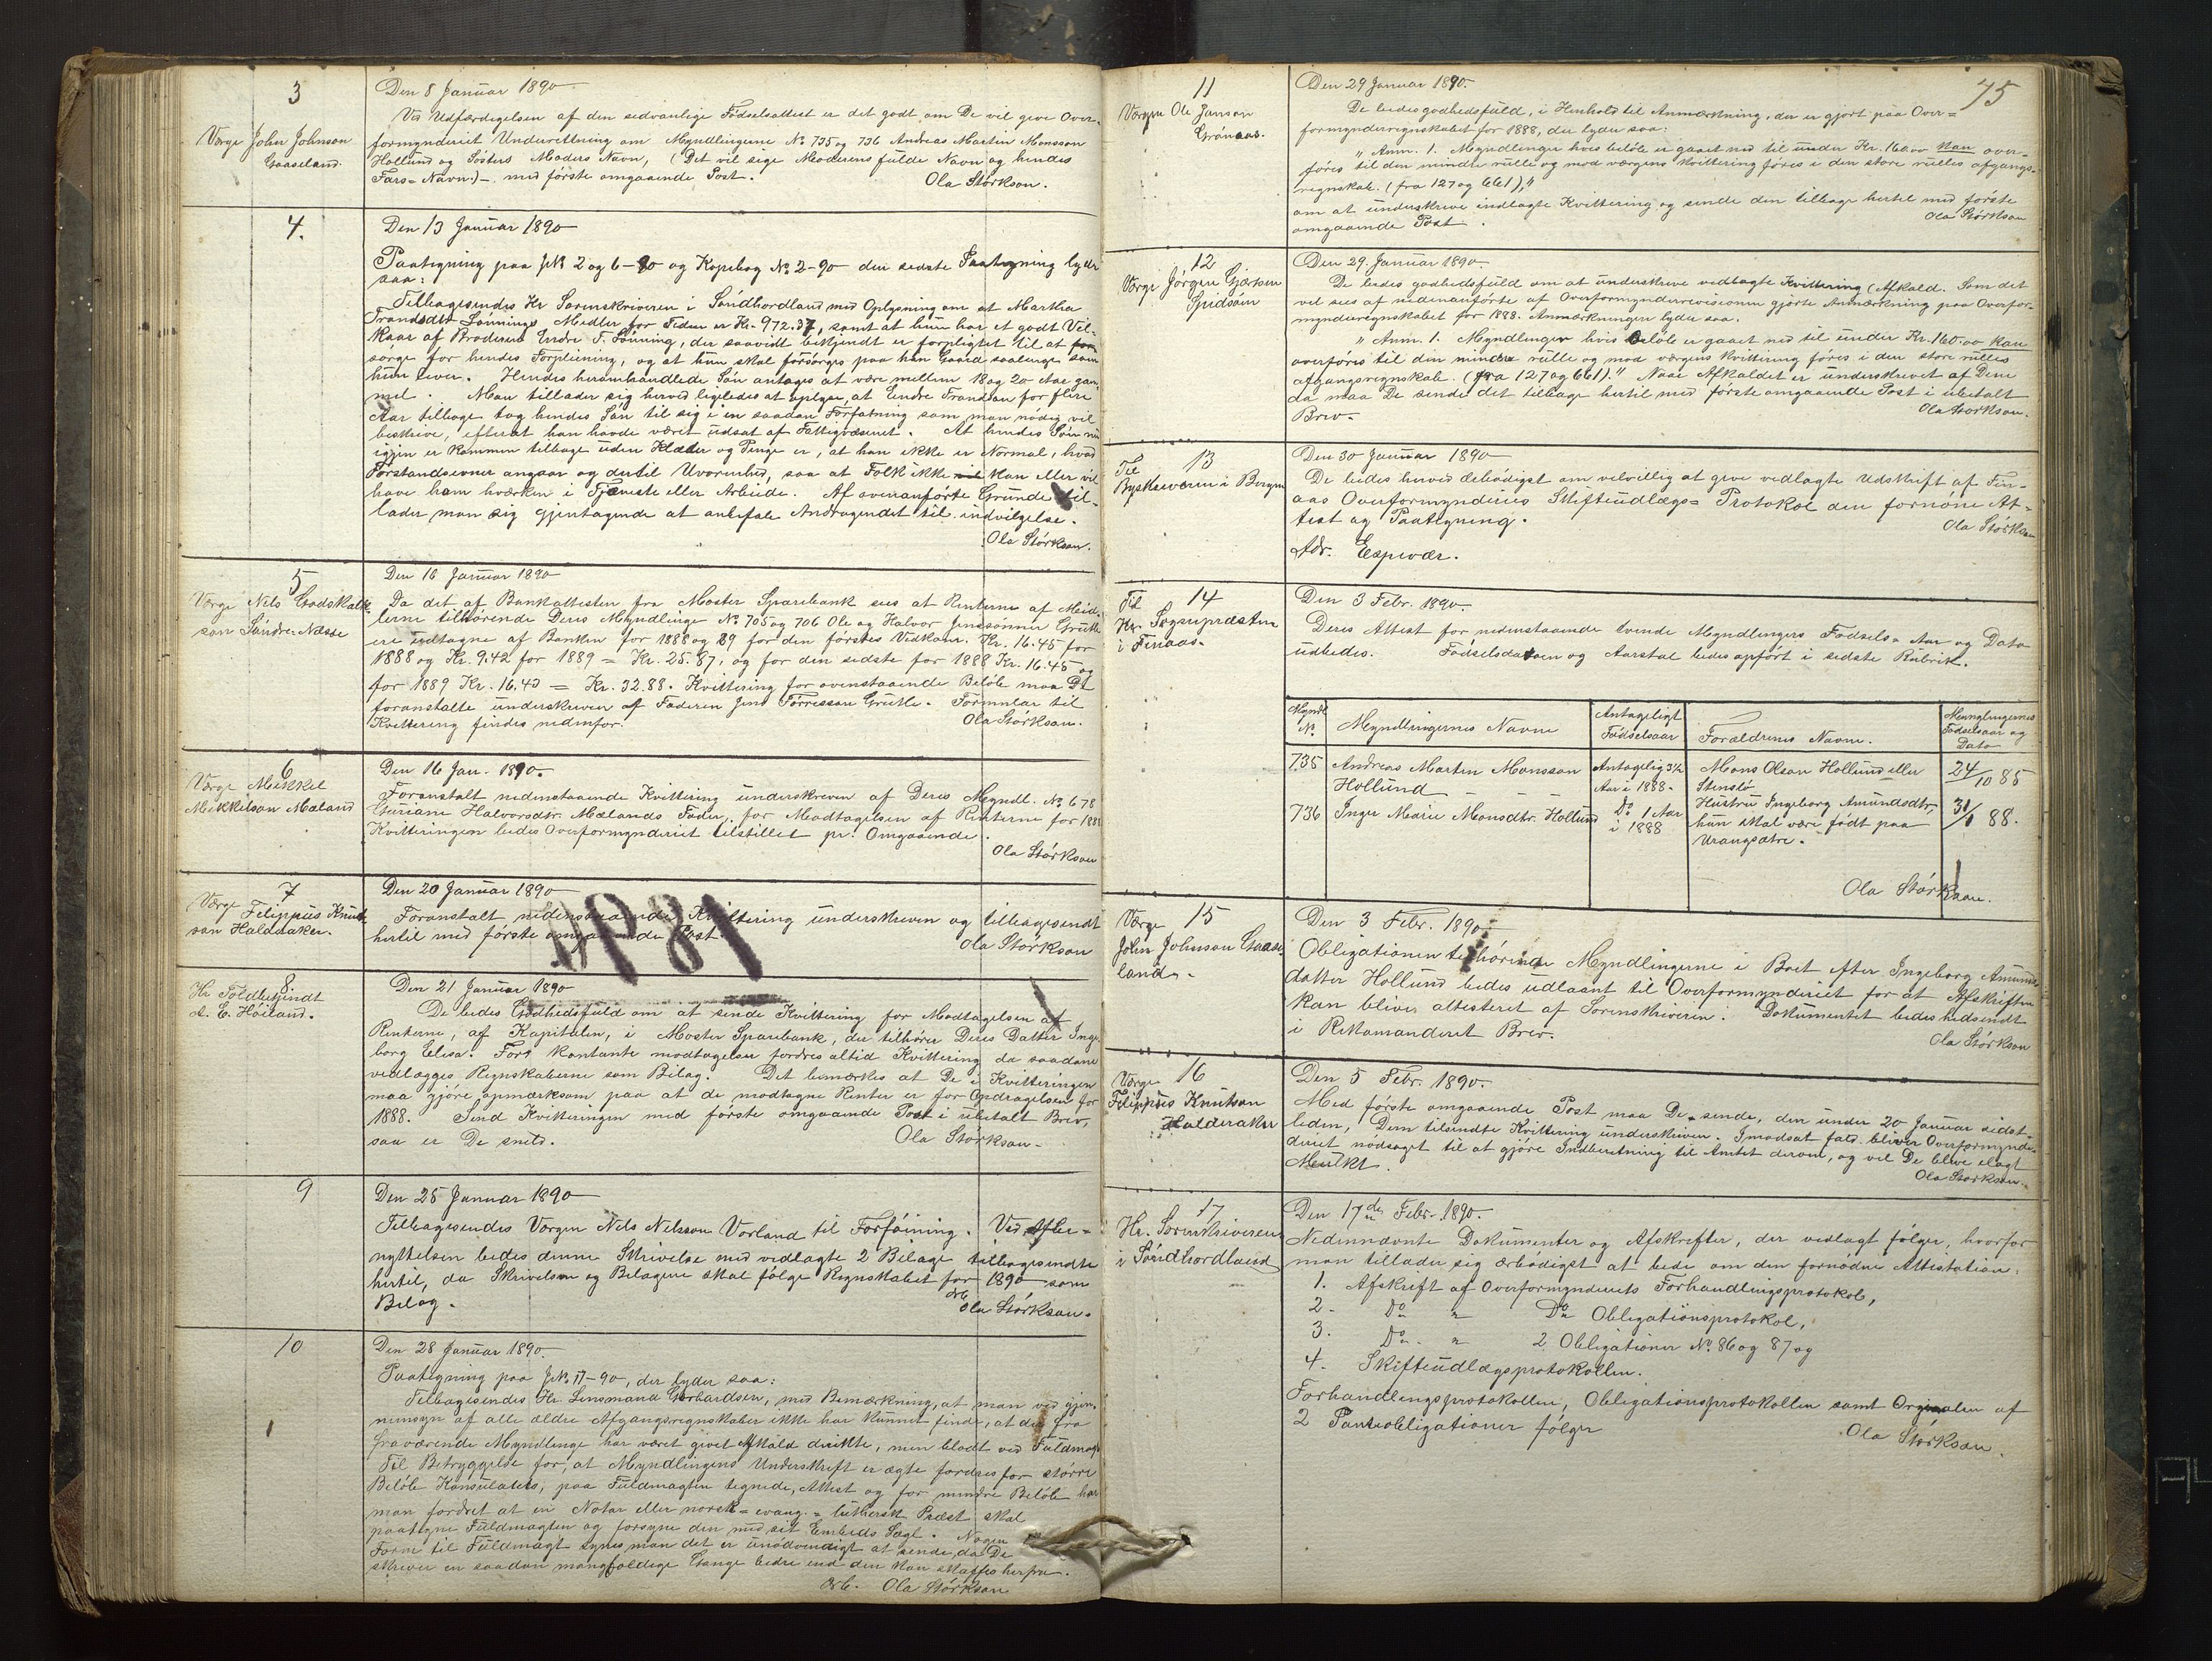 3
Værge John Johnson
Gaaseland.
Den 8 Januar 1890
Ved Udfærdigelsen af den sedvanlige Fødselsattest er det godt om De vil give Over-
formynderiet Underretning om Myndlingerne No 735 og 736 Andreas Martin Monsson
Hollund og Søsters Moders Navn, (Det vil sige Moderens fulde Navn og hendes
Fars-Navn.) - med første omgaaende Post.
Ola Størkson.
4.
Den 13 Januar 1890
Paategning paa JN 2 og 6-90 og Kopebog No 2-90 den sidste Paategning lyder
saa:
Tilbagesendes Hr Sorenskriveren i Søndhordland med Oplysning om at Martha
Trondsdtr Lønnings Medler for Tiden er Kr. 972.37, samt at hun har et godt Vil-
kaar af Broderen Endre T. Lønning, der saavidt bekjendt er forpligtet til at
sørge for hendes Forpleining, og at hun skal forsørges paa han Gaard saalænge som
hun lever. Hendes heromhandlede Søn antages at være mellem 18 og 20 Aar gam-
mel. Man tillader sig herved ligeledes at oplyse, at Endre Trondson for flere
Aar tilbage tog hendes Søn til sig i en saadan Forfatning som man nødig vil
beskrive, efterat han havde været udsat af Fattigvæsenet. At hendes Søn nu
igjen er kommen tilbage uden Klæder og Penge er, at han ikke er Normal, hvad
Forstandsevner angaar og dertil Uvorenhed, saa at Folk ikke kan eller vil
have ham hværken i Tjeneste eller Arbeide. Af ovenanførte Grunde til-
lader man sig gjentagende at anbefale Andragendet til indvilgelse.
Ola Størkson.
5
Værge Nils Godskalk-
son Søndre Næsse
Den 16 Januar 1890
Da det af Bankattesten fra Moster Sparebank sees at Renterne af Mid-
lerne tilhørende Deres Myndlinge No 705 og 706 Ole og Halvor Jenssønner Grutle
ere udtagne af Banken for 1888 og 89 for den førstes Vidkom. Kr. 16.45 for
1888 og Kr. 9.42 for 1889 = Kr. 25.87, og for den sidste for 1888 Kr. 16.45 og
for 1889 Kr. 16.43 = Kr. 32.88. Kvittering for ovenstaaende Beløb maa De
foranstalte underskreven af Faderen Jens Tørresson Grutle. Formular til
Kvittering findes nedenfor.
Ola Størkson.
6
Værge Mikkel
Mikkelson Mæland
Den 16 Jan. 1890.
Foranstalt nedenstaaende Kvittering underskreven af Deres Myndl. No 678
Guriane Halvorsdtr. Mælands Fader, for Modtagelsen af Renterne for 1888
Kvitteringen bedes Overformynderiet tilstillet pr. Omgaaende.
Ola Størkson
7
Værge Filippus Knut
son Haldraker.
Den 20 Januar 1890
Foranstalt nedenstaaende Kvittering underskreven og tilbagesendt
hertil med første omgaaende Post.
Ola Størkson
8.
Hr Toldbetjendt
A. E. Høiland.
Den 21 Januar 1890
De bedes Godhedsfuld om at sende Kvittering for Modtagelsen af
Renterne, af Kapitalen, i Moster Sparebank, der tilhører Deres Datter Inge-
borg Elisa. For kontante modtagelser fordres altid Kvittering da saadane
vedlægges Regnskaberne som Bilag. Det bemærkes at De i Kvitteringen
maa gjøre opmærksom paa at de modtagne Renter er for Opdragelsen for
1888. Send Kvitteringen med første omgaaende Post i ubetalt Brev,
saa er De snild.
Ola Størkson.
9
Den 25 Januar 1890
Tilbagesendes Værgen Nils Nilsson Vorland til Forføining. Ved Afbe-
nyttelsen bedes denne Skrivelse med vedlagte 2 Bilage tilbagesendte
hertil, da Skrivelsen og Bilagene skal følge Regnskabet for 1890 som
Bilag.
Ærb
Ola Størkson.
10
Den 28 Januar 1890.
Paategning paa JNo 11-90, der lyder saa:
Tilbagesendes Hr. Lensmand Gerhardsen, med Bemærkning, at man ved gjen-
nemsyn af alle ældre Afgangsregnskaber ikke har kunnet finde, at der fra
fraværende Myndlinge har været givet Afkald direkte, men blodt ved Fuldmagt
Til Betryggelse for, at Myndlingens Underskrift er ægte fordres for større
Beløb Konsulatets, paa Fuldmagten tegnede, Attest og for mindre Beløb har
man fordret at en Notar eller norsk-evang.-luthersk Præst skal
paategne Fuldmagten og forsyne den med sit Embeds Sægl. Nogen
Form til Fuldmagt synes man det er unødvendigt at sende, da De
skriver en saadan mangfoldige Gange bedre end den kan skaffes herfra.
Ærb. Ola Størkson
75
11
Værgen Ole Janson
Grønaas.
Den 29 Januar 1890.
De bedes godhedsfuld, i Henhold til Anmærkning, der er gjort paa Over-
formynderregnskabet for 1888, der lyder saa:
"Anm. 1. Myndlinger hvis beløb er gaaet ned til under Kr. 160.00 kan over-
føres til den mindre rulle og mod værgens kvittering føres i den store rulles afgangs-
regnskab. (fra 127 og 661)."
om at underskrive indlagte Kvittering og sende den tilbage hertil med første
omgaaende Post.
Ola Størkson
12
Værge Jørgen Gjærtsen
Spidsøen
Den 29. Januar 1890.
De bedes godhedsfuld om at underskrive vedlagte Kvittering (Afkald. Som det
vil sees af nedenanførte af Overformynderrevisionen gjorte Anmærkning paa Overfor-
mynderregnskabet for 1888. Anmærkningen lyder saa.
"Anm. 1. Myndlinger hvis beløb er gaaet ned til under Kr. 160.00 kan
overføres til den mindre rulle og mod værgens kvittering føres i den store rulles
afgangsregnskab. (fra 127 og 661)." Naar Afkaldet er underskrevet af Dem
da maa De sende det tilbage hertil med første omgaaende Post i ubetalt
Brev.
Ola Størkson.
13
Til
Byskriveren i Bergen
Den 30 Januar 1890
De bedes herved ærbødigst om velvillig at give vedlagte Udskrift af Fin-
aas Overformynderies Skifteudlægs-Protokol den fornøne At-
test og Paategning.
Ola Størkson
Adr. Espevær.
14
Til
Hr. Sognepræsten
i Finaas.
Den 3 Febr. 1890.
Deres Attest for nedenstaaende tvende Myndlingers Fødsels-Aar og Dato
udbedes. Fødselsdatoen og Aarstal bedes opført i sidste Rubrik.
Myndl No. Myndlingernes Navne Antageligt Fødselsaar Forældrenes Navne. Mynglingernes Fødselsaar og Dato
735 Andreas Martin Monsson Hollund Antagelig 3½ Aar i 1888. Mons Olson Hollund eller Stenslø 24/10 85
736 Inger Marie Monsdtr. Hollund Do 1 Aar i 1888 Hustru Ingeborg Amundsdtr, hun skal være født paa Urangsætre. 31/1 88.
Ola Størkson.
15
Værge
John Johnson Gaase-
land.
Den 3 Febr. 1890
Obligationen tilhørende Myndlingerne i Boet efter Ingeborg Amunds-
datter Hollund bedes udlaant til Overformynderiet for at Afskriften
kan bliver attesteret af Sorenskriveren. Dokumentet bedes hidsendt
i Rekomanderet Brev.
Ola Størkson
16
Værge
Filippus Knutson
Halderaker
Den 5 Febr. 1890.
Med første omgaaende Post maa De sende, den under 20 Januar sidst-
leden, Dem tilsendte Kvittering underskreven. Imodsat fald bliver Overformynde-
deriet nødsaget til at gjøre Indberetning til Amtet derom, og vil De blive ilagt
Meulkt.
Ola Størkson.
17
Hr. Sorenskriveren
i Søndhordland
Den 17de Febr. 1890.
Nedennævnte Dokumenter og Afskrifter, der vedlagt følger, hvorfor
man tillader sig ærbødigst at bede om den fornødne Attestation:
1. Afskrift af Overformynderiets Forhandlingsprotokol,
2. Do " Do Obligationsprotokol,
3. Do " 2 Obligationer No. 86 og 87 og
4. Skifteudlægsprotokollen.
Forhandlingsprotokollen, Obligationsprotokollen samt Orginalen af
2 Panteobligationer følger
Ola Størkson.